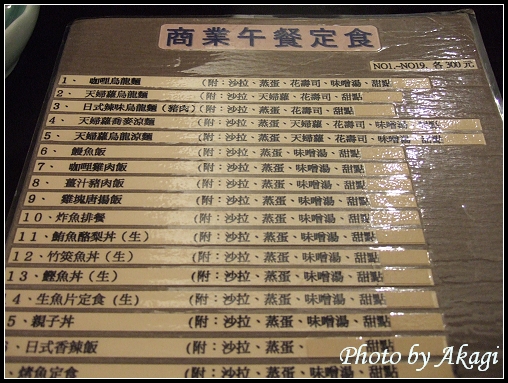 商業午餐定食
NO1.~NO19. 各 300 元
1、 咖哩烏龍麵 (附：沙拉、蒸蛋、花壽司、味噌湯、甜點
2、 天婦蘿烏龍麵 (附：沙拉、天婦蘿、花壽司、甜點
3、 日式辣味烏龍麵（豬肉）(附：沙拉、蒸蛋、花壽司、甜點
4、 天婦蘿蕎麥涼麵 (附：沙拉、蒸蛋、味噌湯、天婦蘿、花壽司、甜點
5、 天婦蘿烏龍涼麵 (附：沙拉、蒸蛋、天婦蘿、花壽司、味噌湯、甜點
6、 鰻魚飯 (附：沙拉、蒸蛋、味噌湯、甜點
7、 咖哩雞肉飯 (附：沙拉、蒸蛋、味噌湯、甜點
8、 薑汁豬肉飯 (附：沙拉、蒸蛋、味噌湯、甜點
9、 雞塊唐揚飯 (附：沙拉、蒸蛋、味噌湯、甜點
10、炸魚排餐 (附：沙拉、蒸蛋、味噌湯、甜點
11、鮪魚酪梨丼（生） (附：沙拉、蒸蛋、味噌湯、甜點
12、竹筴魚丼（生） (附：沙拉、蒸蛋、味噌湯、甜點
13、鰹魚丼（生） (附：沙拉、蒸蛋、味噌湯、甜點
4、生魚片定食（生） (附：沙拉、蒸蛋、味噌湯、甜點
5、親子丼 (附：沙拉、蒸蛋、味噌湯、甜點
、日式香辣飯 (附：沙拉、蒸蛋、味噌湯、甜點
、烤魚定食 (附：沙拉、蒸蛋、味噌湯
Photo by Akagi